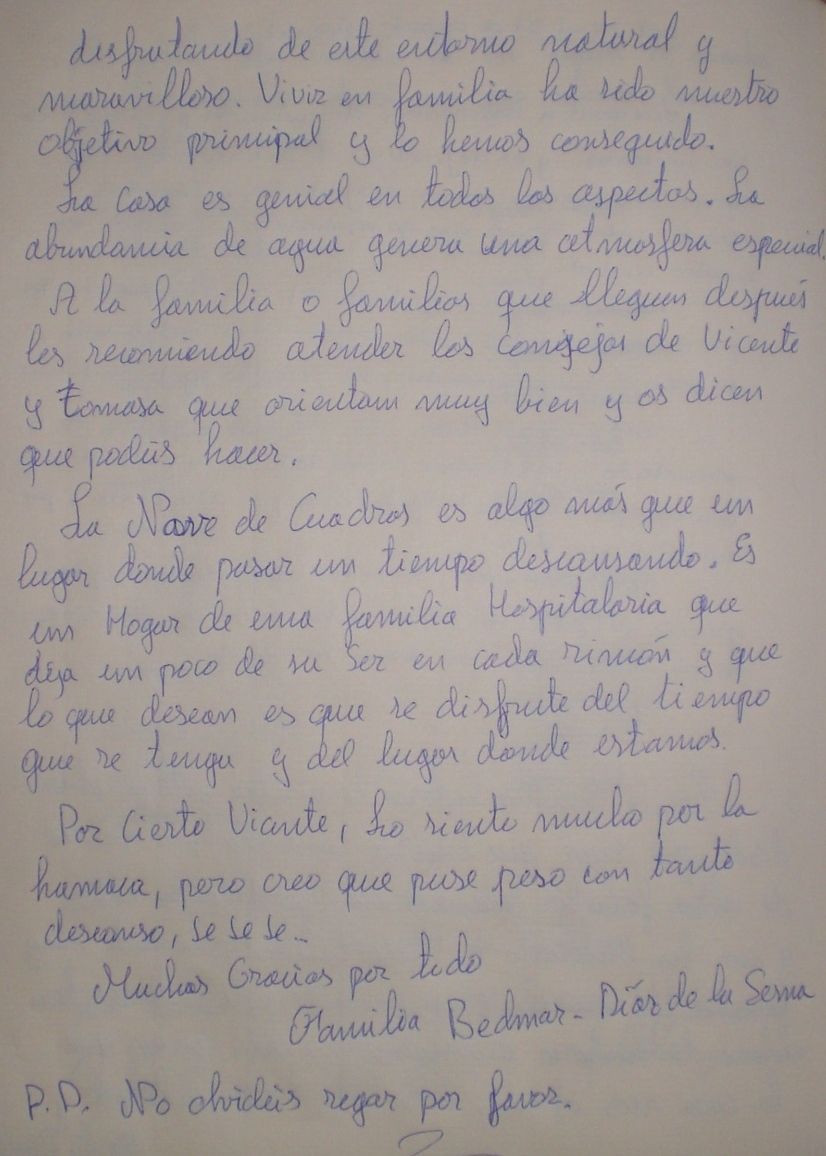 disfrutando de este entorno natural y
maravilloso. Vivir en familia ha sido nuestro
objetivo principal y lo hemos conseguido.
La casa es genial en todos los aspectos. La
abundancia de agua genera una atmosfera especial.
A la familia o familias que lleguen después
les recomiendo atender los consejos de Vicente
y Tomasa que orientan muy bien y os dicen
que podéis hacer.
La Nave de Cuadros es algo más que un
lugar donde pasar un tiempo descansando. Es
un Hogar de una familia Hospitalaria que
deja un poco de su Ser en cada rincón y que
lo que desean es que se disfrute del tiempo
que se tenga y del lugar donde estamos.
Por Cierto Vicente, Lo siento mucho por la
hamaca, pero creo que puse peso con tanto
descanso, Je Je Je...
Muchas Gracias por todo
Familia Bedmar - Díaz de la Serna
P.D. No olvidéis regar por favor.